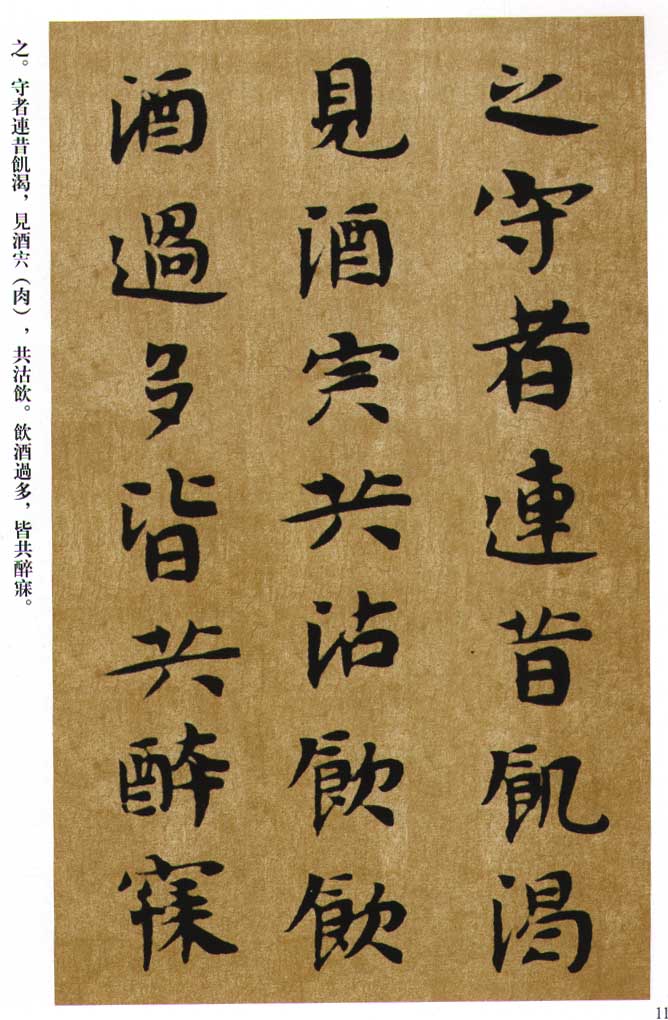 之守者連昔飢渴
見酒宍共沽飲飲
酒過多皆共醉寐
之。守者連昔飢渴，見酒宍（肉），共沽飲。飲酒過多，皆共醉寐。
11